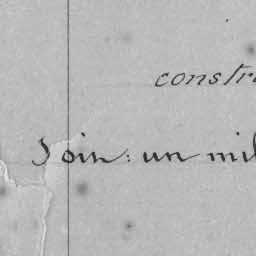 constr
Soin: un mil